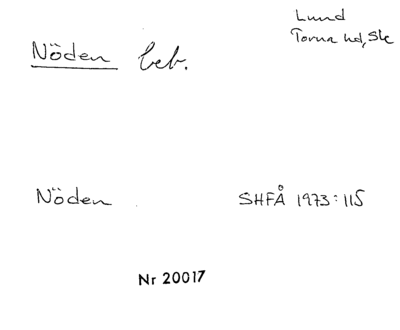 Nöden beb.
Lund
Torna hd, Sk
Nöden SHFÅ 1973:115
Nr 20017